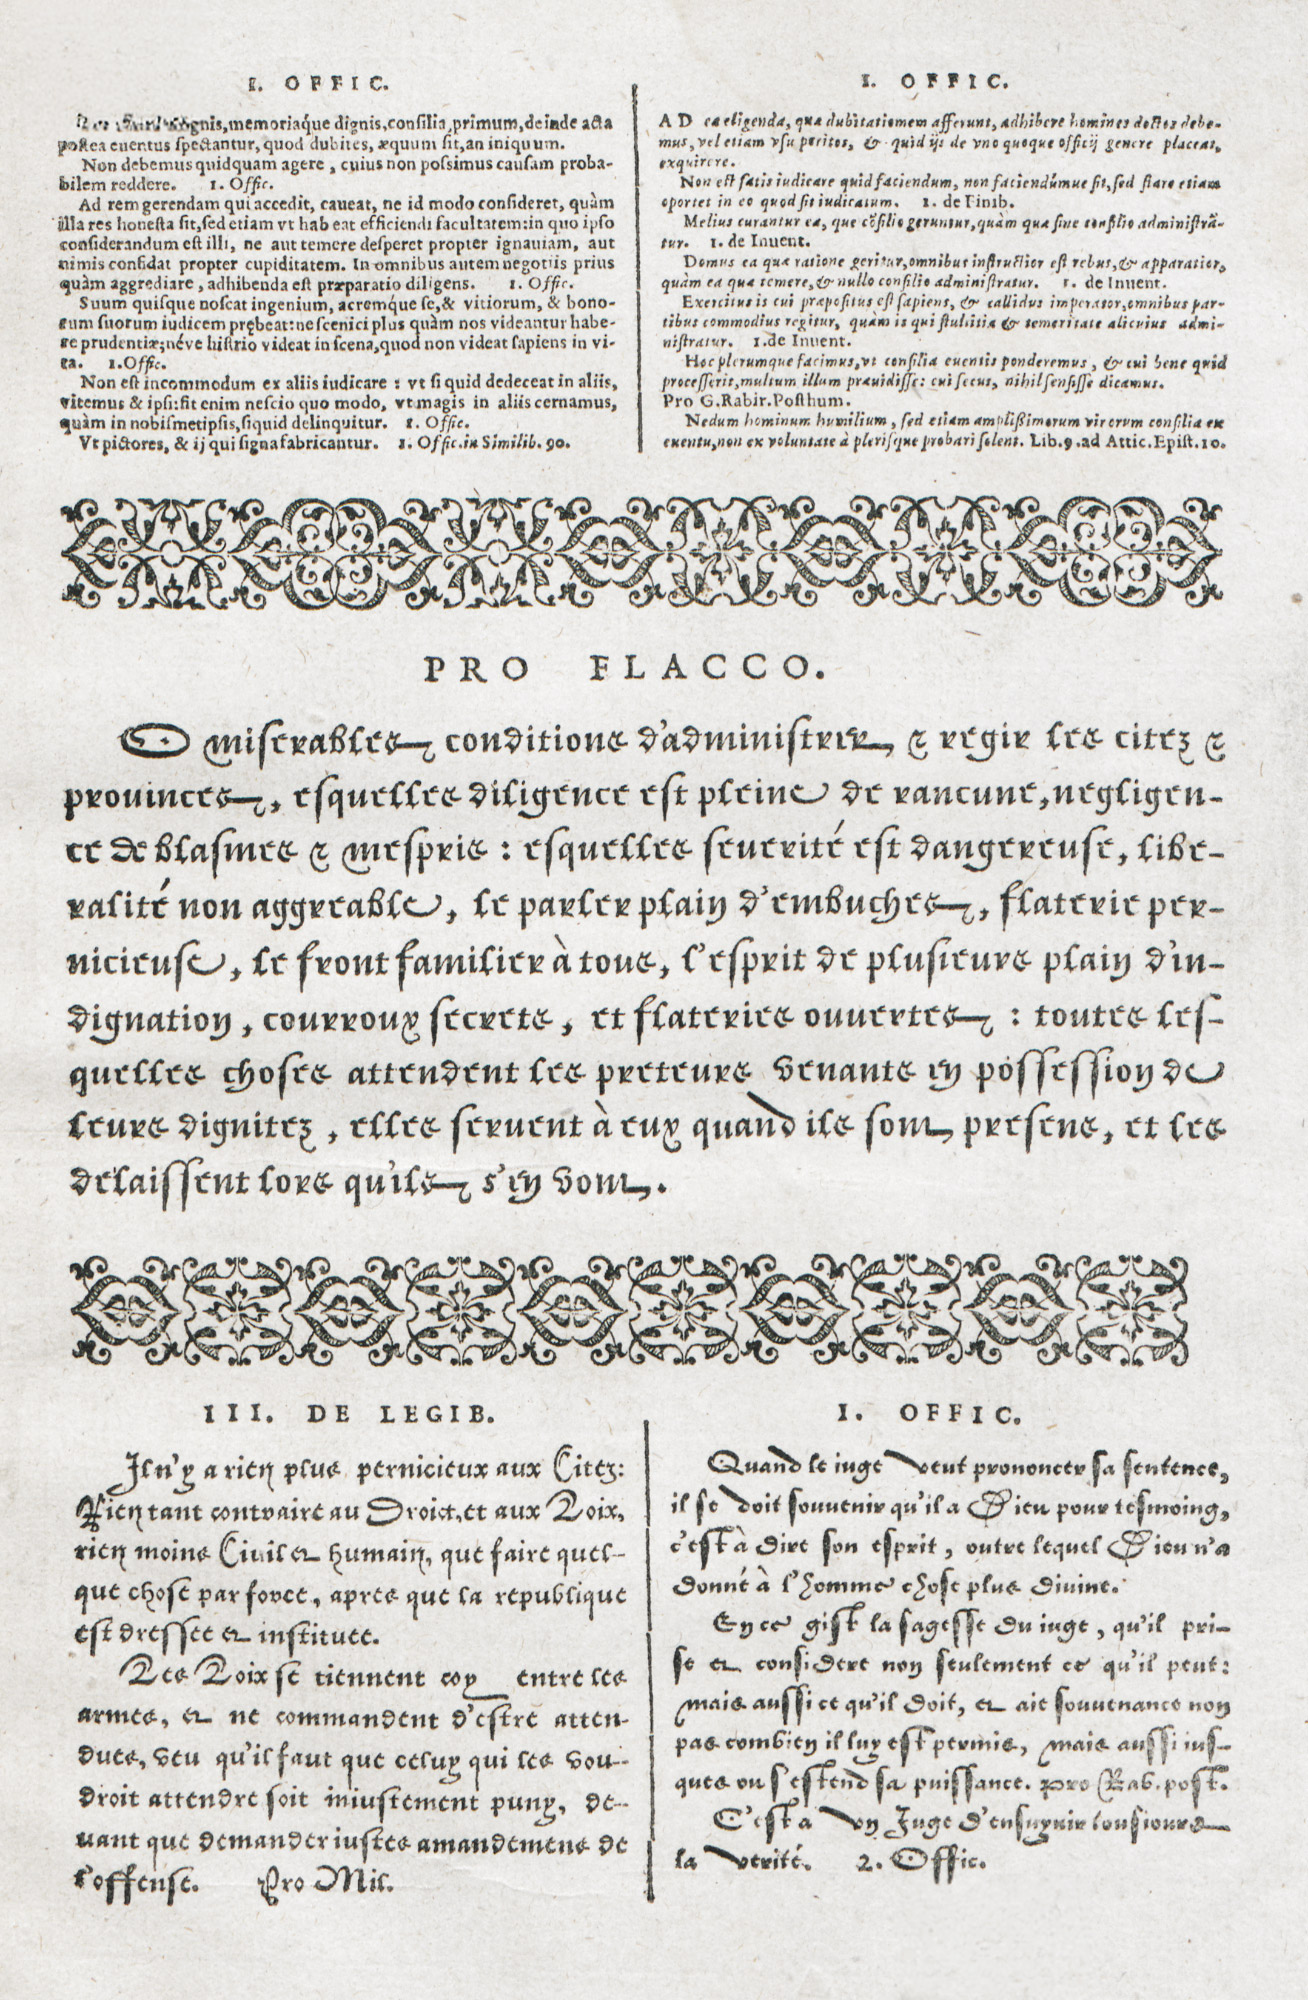 I. OFFIC.
gnis, memoriaque dignis, consilia primum, deinde acta
postea euentus spectantur, quod dubites, æquum sit, an iniquum.
Non debemus quidquam agere, cuius non possimus causam proba-
bilem reddere. 1. Offic.
Ad rem gerendam qui accedit, caueat, ne id modo consideret, quàm
illa res honesta sit, sed etiam vt habeat efficiendi facultatem: in quo ipso
considerandum est illi, ne aut temere desperet propter ignauiam, aut
nimis confidat propter cupiditatem. In omnibus autem negotiis prius
quàm aggrediare, adhibenda est præparatio diligens. 1. Offic.
Suum quisque noscat ingenium, acremq́ue se, & vitiorum, & bono-
rum suorum iudicem prębeat: ne scenici plus quàm nos videantur habe-
re prudentiæ; néve histrio videat in scena, quod non videat sapiens in vi-
ta. 1. Offic.
Non est incommodum ex aliis iudicare: vt si quid dedeceat in aliis,
vitemus & ipsi: fit enim nescio quo modo, vt magis in aliis cernamus,
quàm in nobismetipsis, siquid delinquitur. 1. Offic.
Vt pictores, & ij qui signa fabricantur. 1. Offic. in Similib. 90.
I. OFFIC.
AD ea eligenda, quæ dubitationem afferunt, adhibere homines doctos debe-
mus, vel etiam vsu peritos, & quid ijs de vno quoque officij genere placeat,
exquirere.
Non est satis iudicare quid faciendum, non faciendúmue sit, sed stare etiam
oportet in eo quod sit iudicatum. 1. de Finib.
Melius curantur ea, que cõsilio geruntur, quàm quæ sine consilio administrã-
tur. 1. de Inuent.
Domus ea quæ ratione geritur, omnibus instructior est rebus, & apparatior,
quàm ea quæ temere, & nullo consilio administratur. 1. de Inuent.
Exercitus is cui præpositus est sapiens, & callidus imperator, omnibus par-
tibus commodius regitur, quàm is qui stultitia & temeritate alicuius admi-
nistratur. 1. de Inuent.
Hoc plerumque facimus, vt consilia euentis ponderemus, & cui bene quid
processerit, multum illum præuidisse: cui secus, nihil sensisse dicamus.
Pro G. Rabir. Posthum.
Nedum hominum humilium, sed etiam amplißimorum virorum consilia ex
euentu, non ex voluntate à plerisque probari solent. Lib. 9. ad Attic. Epist. 10.
PRO FLACCO.
O miserables conditions d'administrer & regir les citez &
prouinces, esquelles diligence est pleine de rancune, negligen-
ce de blasmes & mespris: esquelles seuerité est dangereuse, libe-
ralité non aggreable, le parler plain d'embuches, flaterie per-
nicieuse, le front familier à tous, l'esprit de plusieurs plain d'in-
dignation, courroux secrets, et flateries ouuertes: toutes les-
quelles choses attendent les preteurs venants en possession de
leurs dignitez, elles seruent à eux quand ils sont presens, et les
delaissent lors qu'ils s'en vont.
III. DE LEGIB.
Il n'y a rien plus pernicieux aux Citez:
Rien tant contraire au Droict, et aux Loix,
rien moins Ciuil et humain, que faire quel-
que chose par force, apres que la republique
est dressee et instituee.
Les Loix se tiennent coy entre les
armes, et ne commandent d'estre atten-
dues, veu qu'il faut que celuy qui les vou-
droit attendre soit iniustement puny, de-
uant que demander iustes amandemens de
l'offense. Pro Mil.
I. OFFIC.
Quand le iuge veut prononcer sa sentence,
il se doit souuenir qu'il a Dieu pour tesmoing,
c'est à dire son esprit, outre lequel Dieu n'a
donné à l'homme chose plus diuine.
En ce gist la sagesse du iuge, qu'il pri-
se et considere non seulement ce qu'il peut:
mais aussi ce qu'il doit, et aie souuenance non
pas combien il luy est permis, mais aussi ius-
ques ou s'estend sa puissance. Pro Rab. post.
C'est à vn Iuge d'ensuyuir tousiours
la verité. 2. Offic.